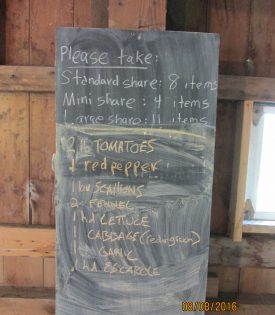 Please take:
Standard share: 8 items
Mini share: 4 items
Large share: 11 items
2 lb TOMATOES
1 red pepper
1 bu SCALLIONS
2 FENNEL
1 hd LETTUCE
CABBAGE (red or green)
1 GARLIC
1 hd ESCAROLE
09/08/2016